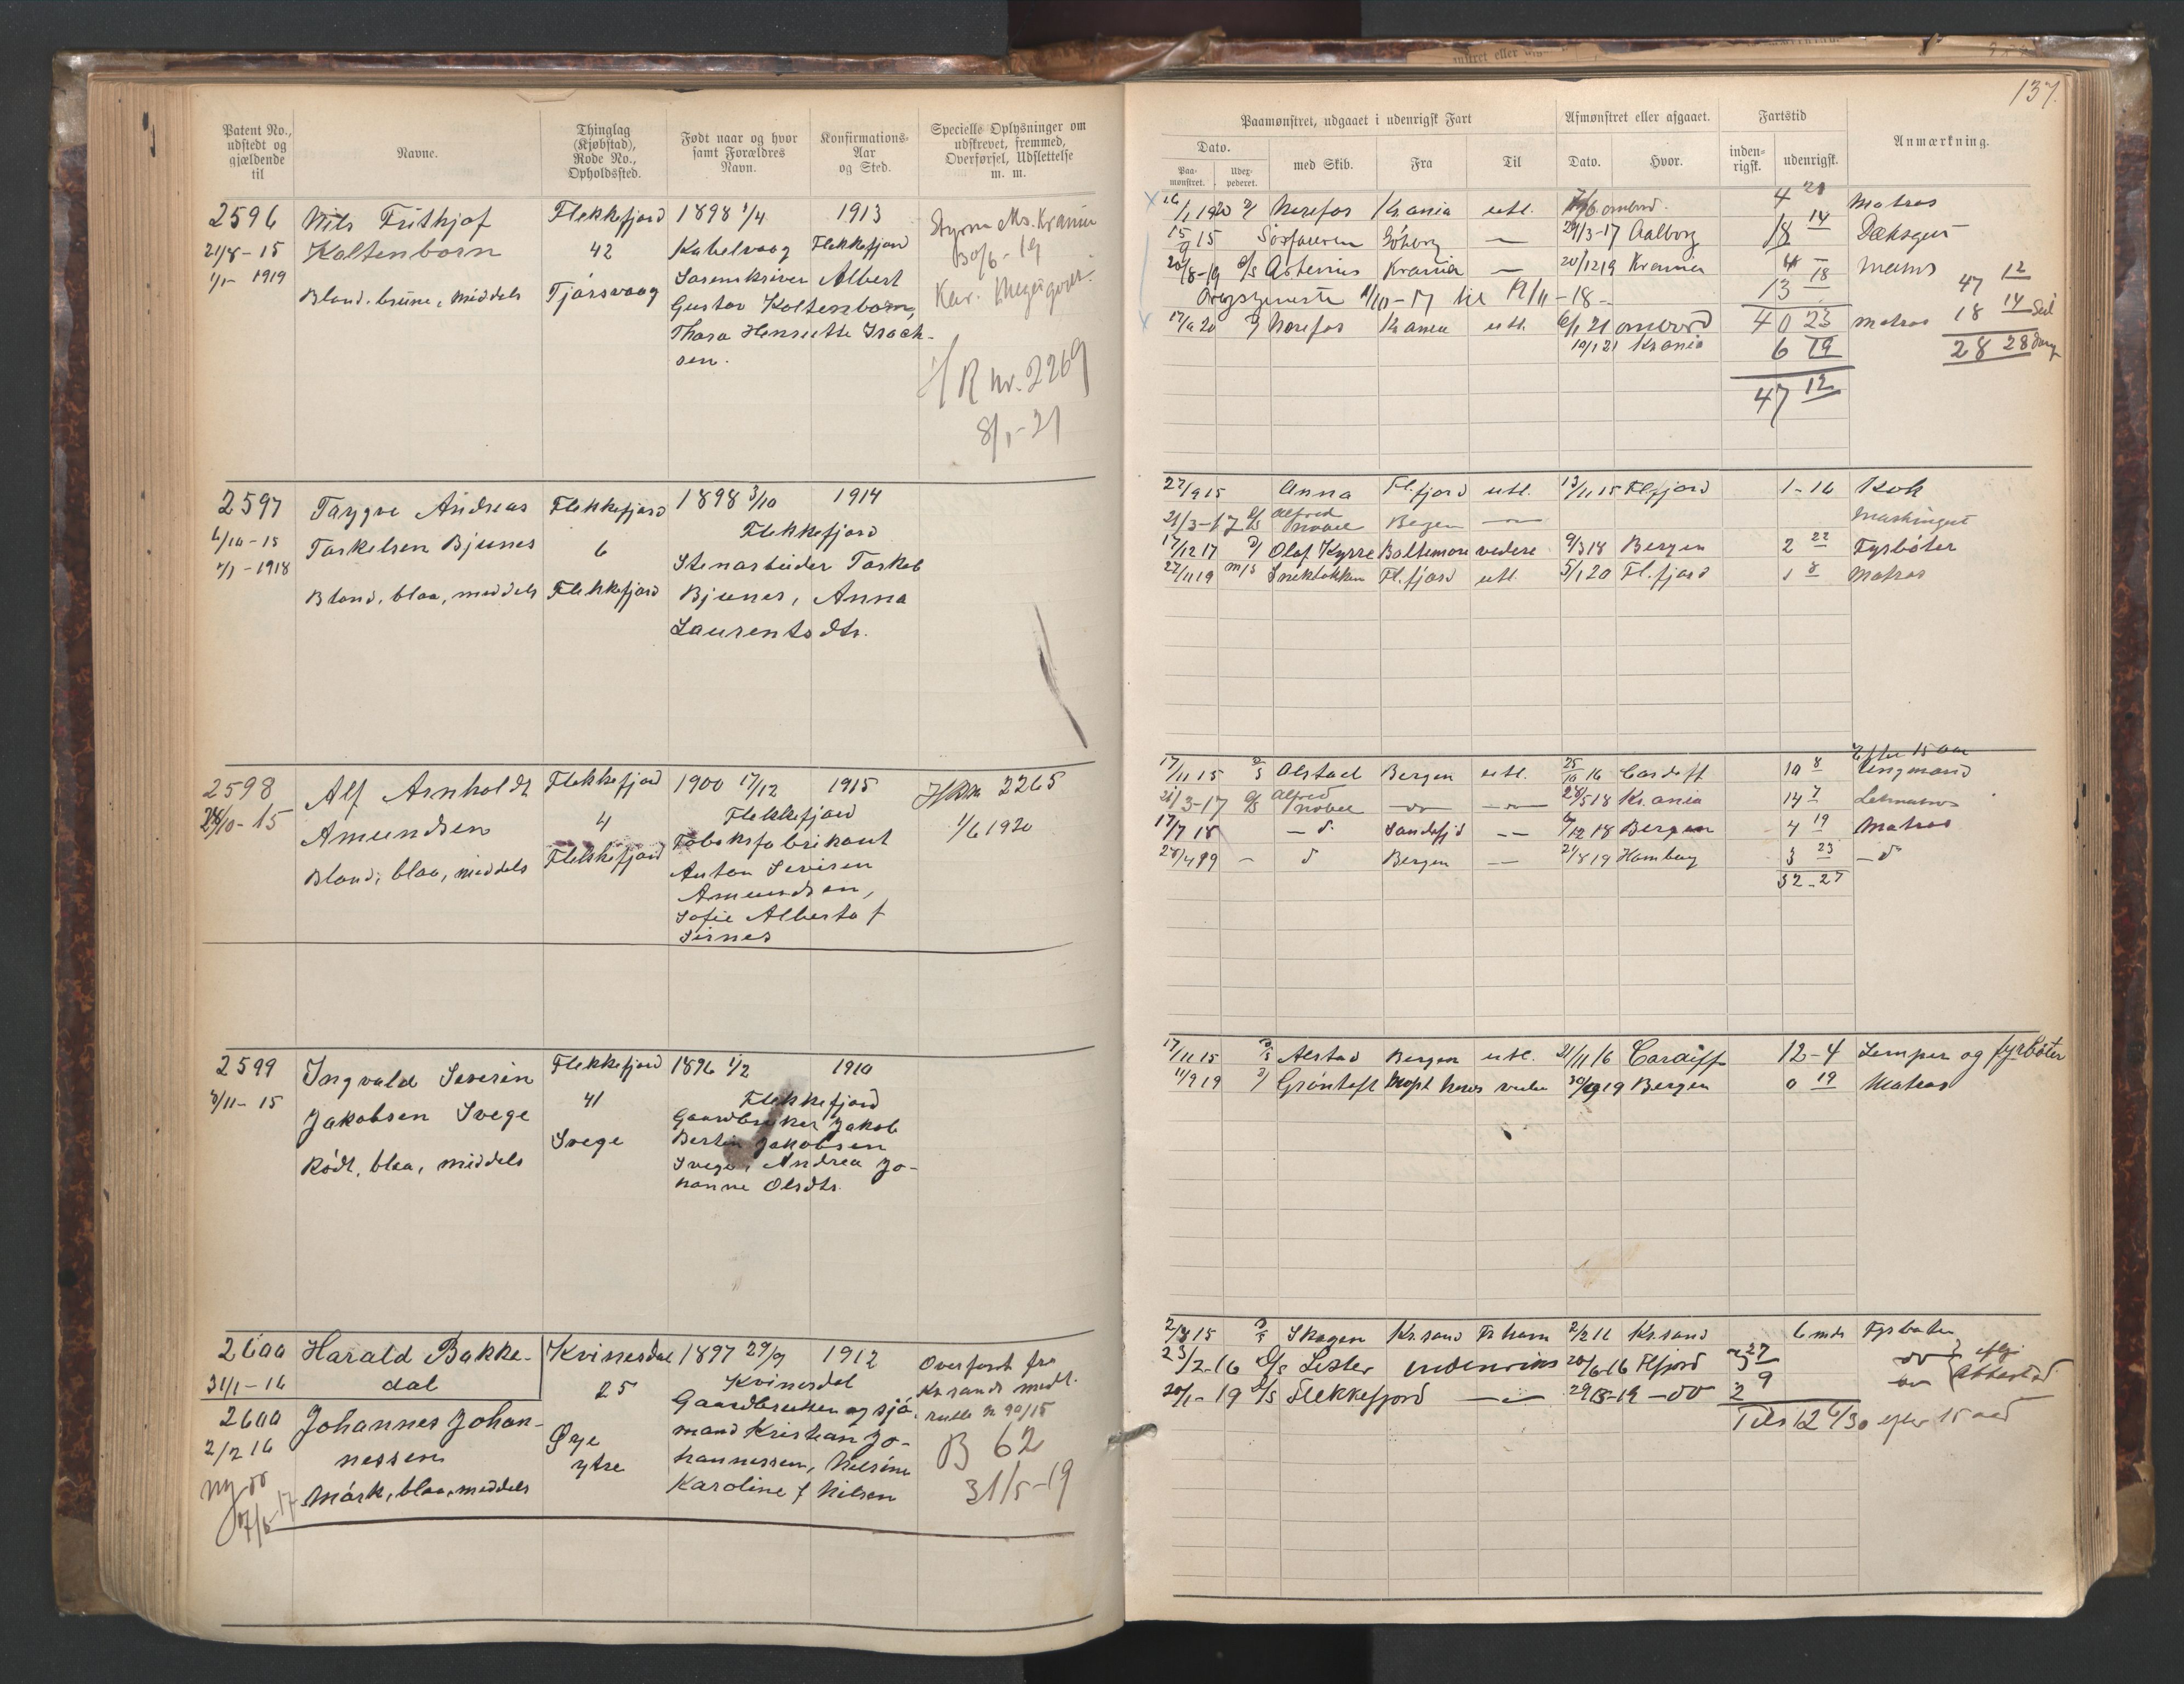 137.
Patent No., udstedt og gjældende til
Navne.
Thinglag (Kjøbstad), Rode No., Opholdssted.
Født naar og hvor samt Forældres Navn.
Konfirmations-Aar og Sted.
Specielle Oplysninger om udskrevet, fremmed, Overførsel, Udslettelse m. m.
Paamønstret, udgaaet i udenrigsk Fart
Afmønstret eller afgaaet.
Fartstid
Anmærkning.
Dato.
Paa-mønstret.
Udex-pederet.
med Skib.
Fra
Til
Dato.
Hvor.
inden-rigsk.
udenrigsk.
2596 Nils Frithjof Flekkefjord 1898 1/4 1913
21/8-15 Kaltenborn 42 Kabelvaag Flekkefjord
1/1- 1919 Blond, brune, middels Tjørsvaag Sorenskriver Albert
Gustav Kaltenborn,
Thora Henriette Isach-
sen.
30/6-19
HR nr. 2269
8/1-21
16/1 1920 Norefos Kr.ania utl. ombord. 4 Matros
15/9 15 Göteborg 29/3-17 Aalborg 18 14 Dæksgut
20/8-19 D/S Krania 20/12 19 Krania 4
47 12
11/10-17 til 19/11-18- 13 18
18 14
Norefos Krania utl. 6/1 21 ombord 40 23 Matros
28 28
10/1 21 Krania 6 19
47 12
2597 Trygve Andreas Flekkefjord 1898 3/10 1914
6/10-15 Torkelsen Bjunes 6 Flekkefjord
1/1-1918 Blond, blaa, middels Flekkefjord Stenarbeider Torkel
Bjunes, Anna
Laurentsdtr.
27/9 15 Anna Fl.fjord utl. 13/11 15 Fl.fjord 1-16 Kok
21/3-17 D/S Alfred Nobel Bergen Maskingut
17/12 17 Olaf Kyrre Baltimore videre 9/3 18 Bergen 2 22 Fyrbøter
27/11 19 m/s Fl.fjord utl. 5/1 20 Fl.fjord 1 8 Matros
2598 Alf Arnholdt Flekkefjord 1900 17/12 1915
Amundsen 4 Flekkefjord
Blond, blaa, middels Flekkefjord Tobaksfabrikant
Anton Severin
Amundsen,
Sofie Alberta f
Sirnes
2265
1/6 1920
17/11 15 Alstad Bergen utl. 25/10 16 Cardiff 10 8 Ungmand
21/3-17 D/S Alfred Nobel 28/5 18 Kr.ania 14 7 Letmatros
17/7 18 Sandefjd 12 18 Bergen 4 19 Matros
28/4 19 Bergen 21/8 19 Hamburg 3 23
32-27
2599 Ingvald Severin Flekkefjord 1896 1/2 1910
8/11-15 Jakobsen Svege 41 Flekkefjord
Rødt, blaa, middels Svege Gaardbruker Jakob
Bertin Jakobsen
Svege, Andrea Jo-
hanne Olsdtr.
17/11 15 Alstad Bergen utl. 21/11 16 Cardiff 12-4 Lemper og fyrbøter
11/9 19 Grøntoft 30/9 19 Bergen 0 19 Matros
2600 Harald Bakke- Kvinesdal 1897 29/9 1912 Overført fra
31/1-16 dal 25 Kvinesdal Kr.sands
2600 Johannes Johan- Gaardbruker og sjø-
2/2 16 nessen Øye mand Kristian Jo-
ytre hannessen, Nilsine
Mørk, blaa, middels Karoline f Nilsen
B 62
31/5-19
15 Skogen Kr.sand 2/2 16 Kr.sand 6 mdr Fyrbøter
23/2-16 D/S Lister indenriks 20/6-16 Flfjord 3 27
20/1-19 D/S Flekkefjord 2 9
Tils 12 6/30 efter 15 aar